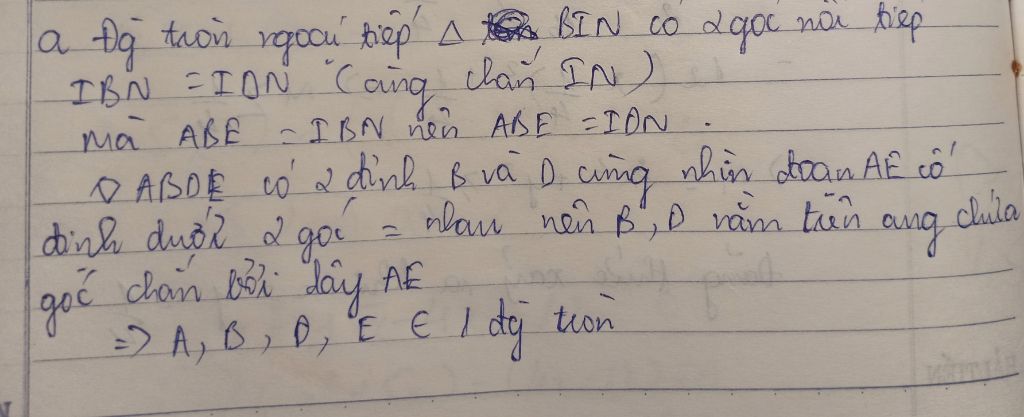 a Đg tròn ngoại tiếp Δ BIN có 2 góc nội tiếp
IBN = IDN (cùng chắn IN)
mà ABE = IBN nên ABE = IDN.
◊ ABDE có 2 đỉnh B và D cùng nhìn đoạn AE cố
định dưới 2 góc = nhau nên B, D nằm trên cung chứa
góc chắn bởi dây AE
=> A, B, D, E ∈ 1 đg tròn